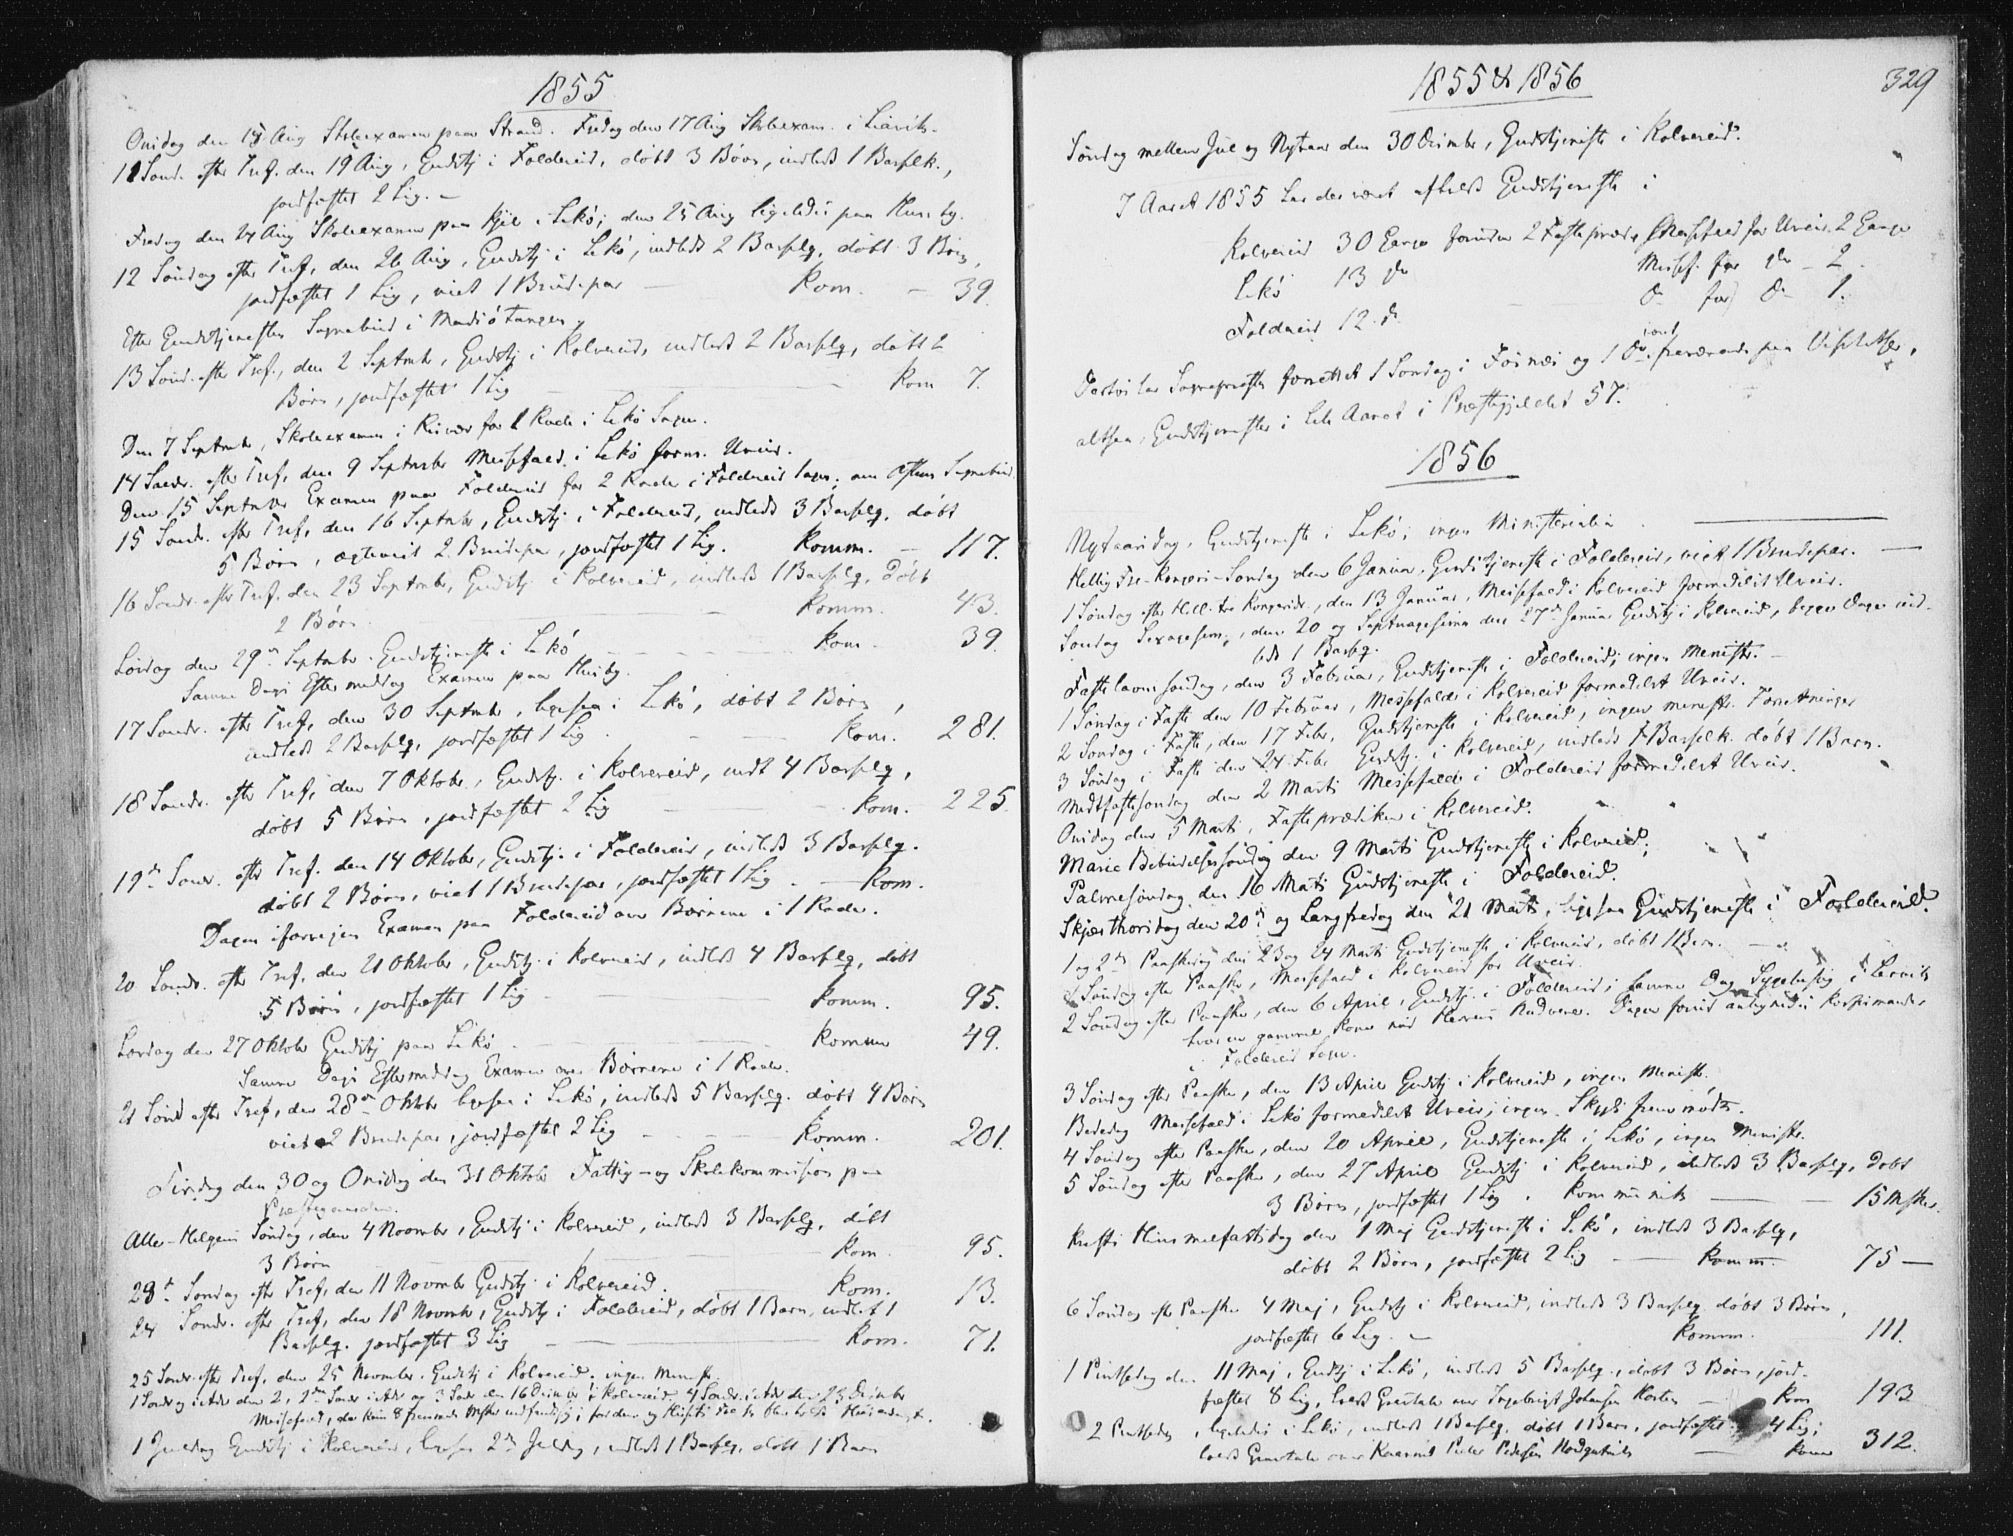 1855
Onsdag den 15 Aug Skoleexamen paa Strand. Fredag den 17 Aug Skoleexam. i
11 Sønd. efter Tref. den 19 Aug, Gudstj i Foldereid, døbt 3 Børn, indledt 1 Barslk.,
jordfæstet 2 Lig. –
Fredag den 24 Aug Skoleexamen paa i Lekø; den 25 Aug ligeledes paa Huseby.
12 Søndag efter Tref, den 26 Aug, Gudstj i Lekø, indledt 2 Barslq, døbt 3 Børn,
jordfæstet 1 Lig, viet 1 Brudepar – Kom. – 39.
Efter Gudstjenesten Sognebud i Madsøtangen.
13 Sønd. efter Tref., den 2 Septmbr, Gudstj i Kolvereid, indledt 2 Barslq, døbt 2
Børn, jordfæstet 1 Lig – Kom 7.
Den 7 Septmbr, Skoleexamen i for 1 Rode i Lekø Sogn.
14 Søndr. efter Tref, den 9 Septmbr Messefald i Lekø form. Uveir.
Den 15 Septmbr Examen paa Foldereid for 2 Roder i Foldereid Sogn; om Aftenen Sognebud.
15 Søndr. efter Tref, den 16 Septmbr, Gudstj i Foldereid, indledt 3 Barslq, døbt
5 Børn, ægteviet 2 Brudepar, jordfæstet 1 Lig. Komm. – 117.
16 Søndr. efter Tref. den 23 Septmbr, Gudstj i Kolvereid, indledt 1 Barslq, døbt
2 Børn. Komm. 43.
Lørdag den 29de Septmbr. Gudstjeneste i Lekø – Kom. 39.
Samme Dags Eftermiddag Examen paa Huseby.
17 Søndr. efter Tref, den 30 Septmbr, ligesaa i Lekø, døbt 2 Børn,
indledt 2 Barslq, jordfæstet 1 Lig. – Kom. 281.
18 Søndr. efter Tref, den 7 Oktobr, Gudstj. i Kolvereid, indt 4 Barslq,
døbt 5 Børn, jordfæstet 2 Lig – Kom. 225.
19de Sønd. efter Tref. den 14 Oktobr, Gudstj. i Foldereid, indledt 3 Barslq.
døbt 2 Børn, viet 1 Brudepar, jordfæstet 1 Lig. – Kom.
Dagen iforveien Examen paa Foldereid over Børnene i 1 Rode.
20 Sønd. efter Tref. den 21 Oktobr, Gudstj. i Kolvereid, indledt 4 Barslq, døbt
5 Børn, jordfæstet 1 Lig – Komm. 95.
Lørdag den 27 Oktobr Gudstj paa Lekø – Komm 49.
Samme Dags Eftermiddag Examen over Børnene i 1 Rode.
21 Sønd efter Tref, den 28de Oktobr ligesaa i Lekø, indledt 5 Barslq. døbt 4 Børn
viet 2 Brudepar, jordfæstet 2 Lig – Komm. 201.
Tirsdag den 30 og Onsdag den 31 Oktobr Fattig- og Skolekommission paa
Præstegaarden.
Alle-Helgens Søndag, den 4 Novmbr, Gudstj i Kolvereid, indledt 3 Barslq, døbt
3 Børn – Kom. 95.
23de Søndag efter Tref, den 11 Novmbr Gudstj i Kolvereid. – Kom. 13.
24 Søndr. efter Tref, den 18 Novmbr, Gudstj i Foldereid, døbt 1 Barn, indledt 1
Barslq. jordfæstet 3 Lig – Kom. 71.
25 Søndr efter Tref, den 25 Novmber, Gudstj i Kolvereid, ingen Minist.
1 Søndag i Advt den 2, 2den Søndr i Advt og 3 Søndr den 16 Decmbr i Kolvereid. 4 Søndr. i Advt den 23 Decmber
Messefald, da kun 8 fremmede
1 Juledag Gudstj i Kolvereid, ligesaa 2den Juledag, indledt 1 Barslq, døbt 1 Barn
1855 & 1856 329
Søndag mellem Jul og Nytaar den 30 Decmbr, Gudstjeneste i Kolvereid.
I Aaret 1855 har der været afholdt Gudstjeneste i
Kolvereid 30 Gange foruden 2 Fasteprædr, Messefald for Uveir 2 Gange
Lekø 13 do Messef. for do – 2.
Foldereid 12. do do for do 1.
Desuden har Sognepresten forrettet 1 Søndag i Fosnæs og 1 do fraværende paa
altsaa, Gudstjenester i hele Aaret i Præstegjeldet 57.
1856
Nytaarsdag, Gudstjeneste i Lekø; ingen Ministerialia.
Hellig Tre-Kongers-Søndag den 6 Januar, Gudstjeneste i Foldereid, viet 1 Brudepar. –
1 Søndag efter Hell. tre Kongersdr., den 13 Januar, Messefald i Kolvereid formedelst Uveir.
Søndag Sexagesim., den 20 og Septuagesima den 27de Januar Gudstj i Kolvereid, begge Dage ind-
ledt 1 Barslq.
Fastelavnssøndag, den 3 Februar, Gudstjeneste i Foldereid; ingen Ministr. –
1 Søndag i Faste den 10 Februar, Messefald i Kolvereid formedelst Uveir.
2 Søndag i Faste, den 17 Febr, Gudstjeneste i Kolvereid, ingen ministr. Forretninger
3 Søndag i Faste den 24 Febr Gudstj. i Kolvereid, indledt 1 Barselk. døbt 1 Barn.
Midtfastesøndag den 2 Marts Messefald i Foldereid formedelst Uveir.
Onsdag den 5 Marts, Fasteprædiken i Kolvereid.
Marie Bebudelsessøndag den 9 Marts Gudstjeneste i Kolvereid;
Palmesøndag den 16 Marts Gudstjeneste i Foldereid.
Skjærthorsdag den 20de og Langfredag den 21 Marts, ligesaa Gudstjeneste i Foldereid.
1 og 2den Paaskedag den 23 og 24 Marts Gudstjeneste i Kolvereid, døbt 1 Barn. –
1 Søndag efter Paaske, Messefald i Kolvereid for Uveir.
2 Søndag efter Paaske, den 6 April, Gudstj. i Foldereid, samme Dag Sygebesøg i
hos en gammel Kone ved Navn
i Foldereid Sogn.
3 Søndag efter Paaske, den 13 April Gudstj i Kolvereid, ingen Ministr.
Bededag Messefald i Lekø formedelst Uveir; ingen Skyds fremmødte.
4 Søndag efter Paaske, den 20 April, Gudstjeneste i Lekø, ingen Ministr.
5 Søndag efter Paaske, den 27 April Gudstj i Kolvereid, indledt 3 Barslq, døbt
3 Børn, jordfæstet 1 Lig. Kommunik – 15 Msker.
Kristi Himmelfartsdag den 1 Maj Gudstjeneste i Lekø, indledt 3 Barslq,
døbt 2 Børn, jordfæstet 2 Lig – Komm. 75 –
6 Søndag efter Paaske 4 Maj, Gudstj i Kolvereid, indledt 3 Barslq døbt 3 Børn,
jordfæstet 6 Lig. – Komm. 111.
1 Pintsedag den 11 Maj, Gudstj i Lekø, indledt 5 Barslq, døbt 3 Børn, jord-
fæstet 8 Lig, holdt Gravtale over Ingebrigt Johansen – Kom 193
2 Pintsedag, ligeledes i Lekø, indledt 1 Barslq, døbt 1 Barn, jordfæstet 4 Lig;
holdt Gravtale over Peder Pedersen – Komm 312.